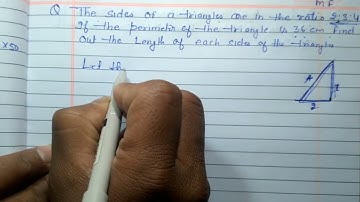 MF
Q The sides of a triangles are in the ratio 2:3:4
If the perimeter of the triangle is 36 cm Find
Out the Length of each sides of the triangles
X50
Let th
4
3
2